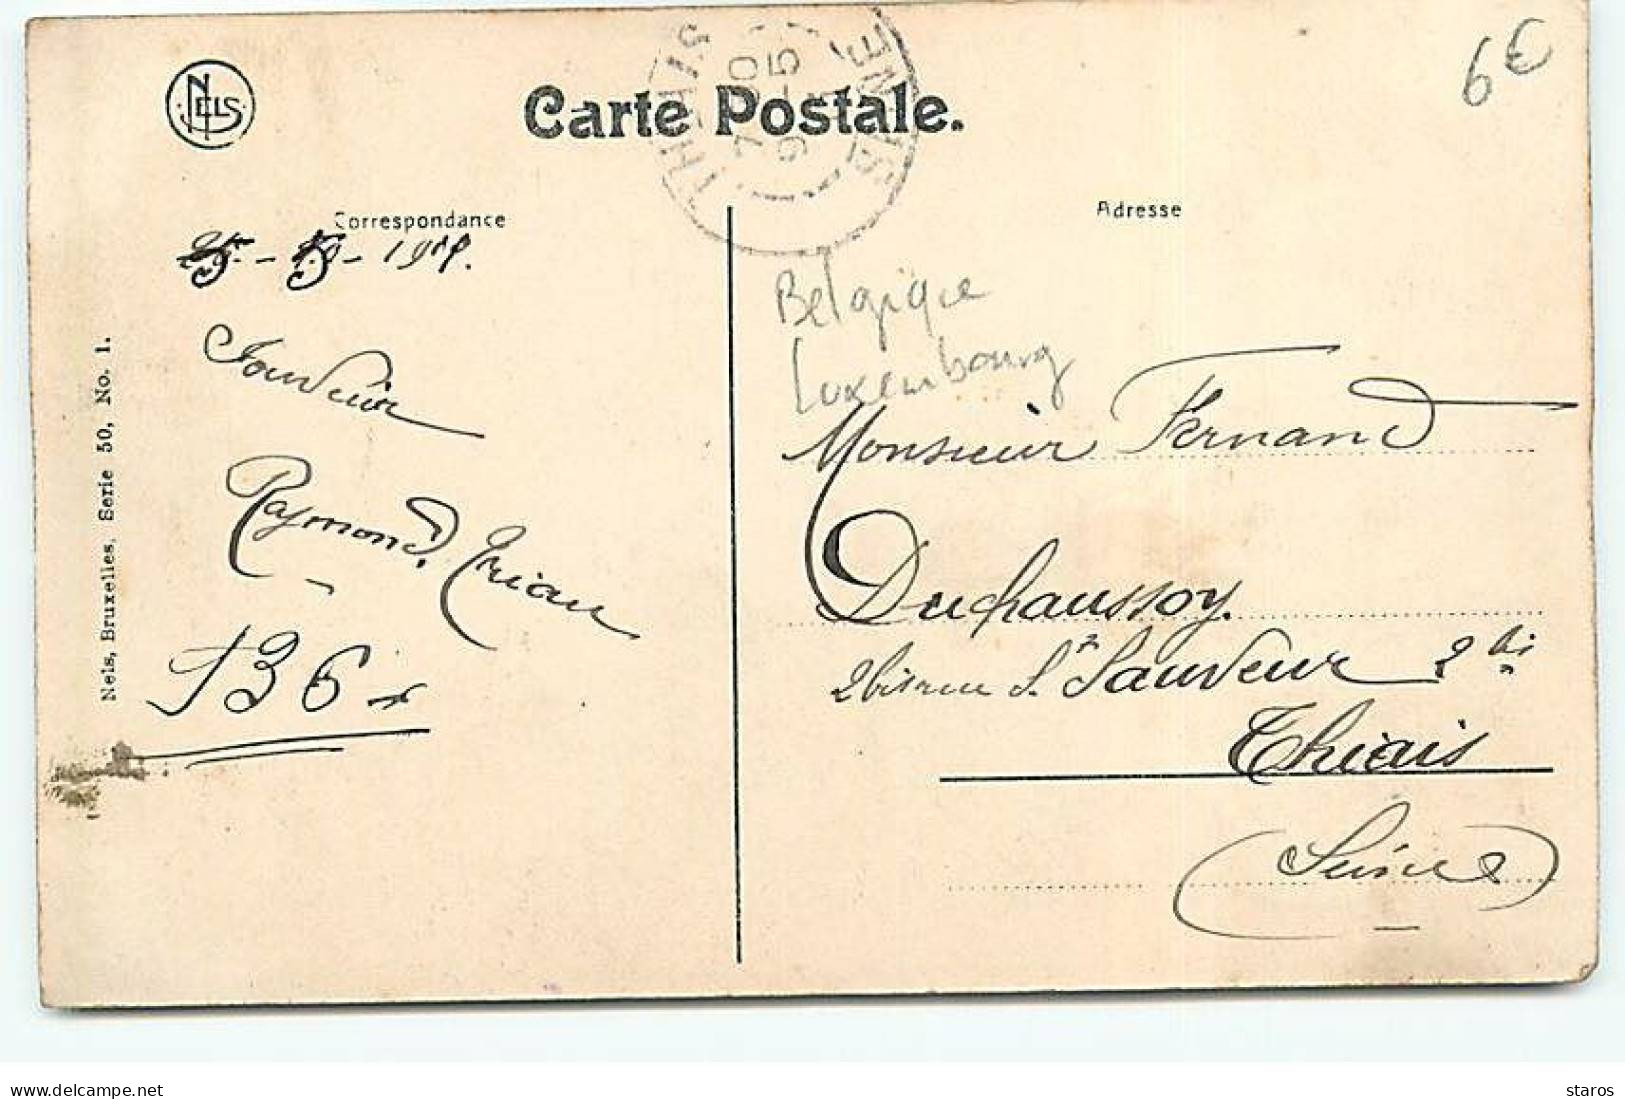 NELS
Carte Postale.
6€
THIAIS
SEINE
Correspondance
Adresse
Souvenir
Raymond
136
Nels, Bruxelles, Serie 50, No. 1.
Belgique
Luxembourg
Monsieur Fernand
Duchaussoy.
2 bis rue St Sauveur 2 bis
Thiais
(Seine)
delcampe.net
staros